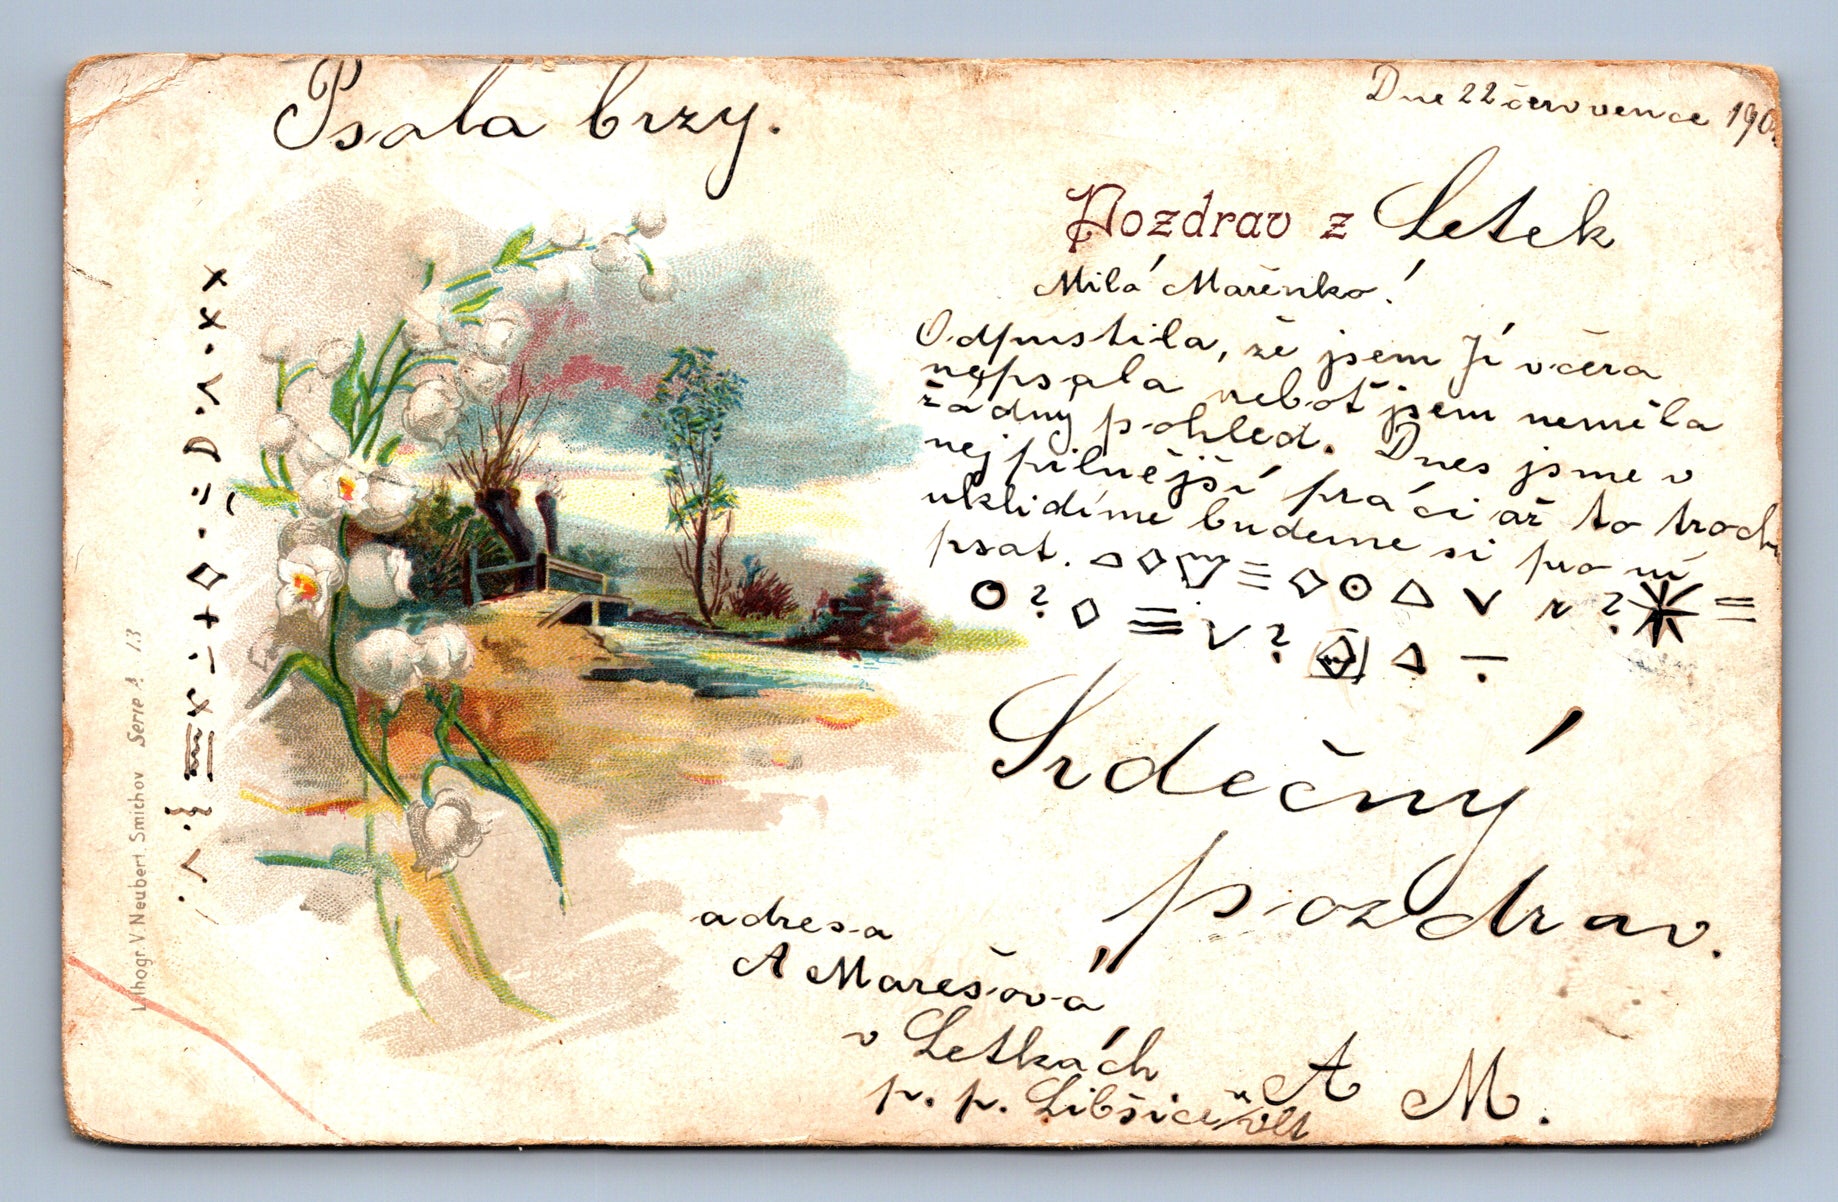 Psala brzy.
Dne 22 července 190
Pozdrav z Letek
Milá Mařenko!
Odpustila, že jsem Jí včera
nepsala neboť jsem neměla
žádný pohled. Dnes jsme v
nejpilnější práci až to troch
uklidíme budeme si pro ní
psat.
Srdečný
pozdrav.
adresa
A Marešová
v Letkách
p. p. Libšice
A M.
Lithogr. V Neubert Smichov Serie 113